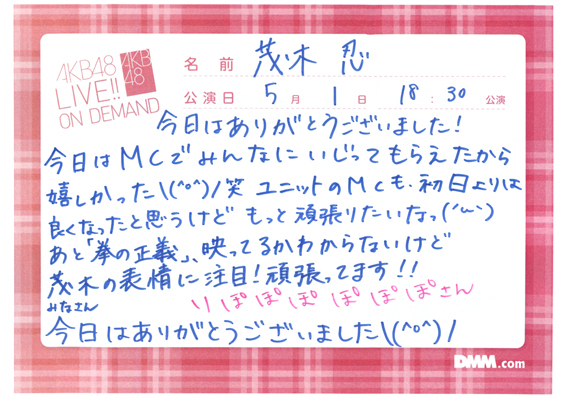 AKB48
LIVE!!
ON DEMAND
AKB
48
名前 茂木 忍
公演日 5月 1日 18:30 公演
今日はありがとうございました!
今日はMCでみんなにいじってもらえたから
嬉しかった\(^o^)/笑 ユニットのMCも、初日よりは
良くなったと思うけど もっと頑張りたいなっ(´ω`)
あと「拳の正義」、映ってるかわからないけど
茂木の表情に注目!頑張ってます!!
みなさん りぽぽぽぽぽぽさん
今日はありがとうございました\(^o^)/
DMM.com